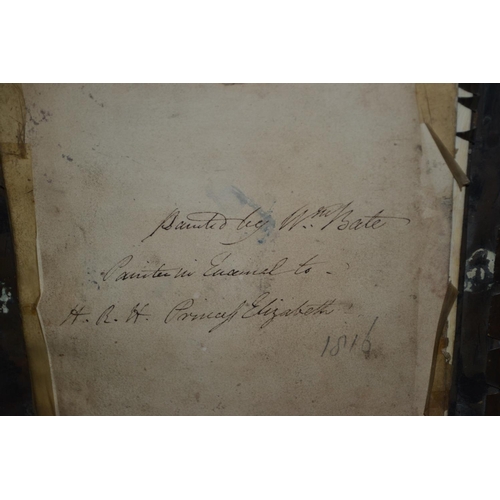 Painted by Wm Bate
Painter in Enamel to
H. R. H. Princess Elizabeth
1816